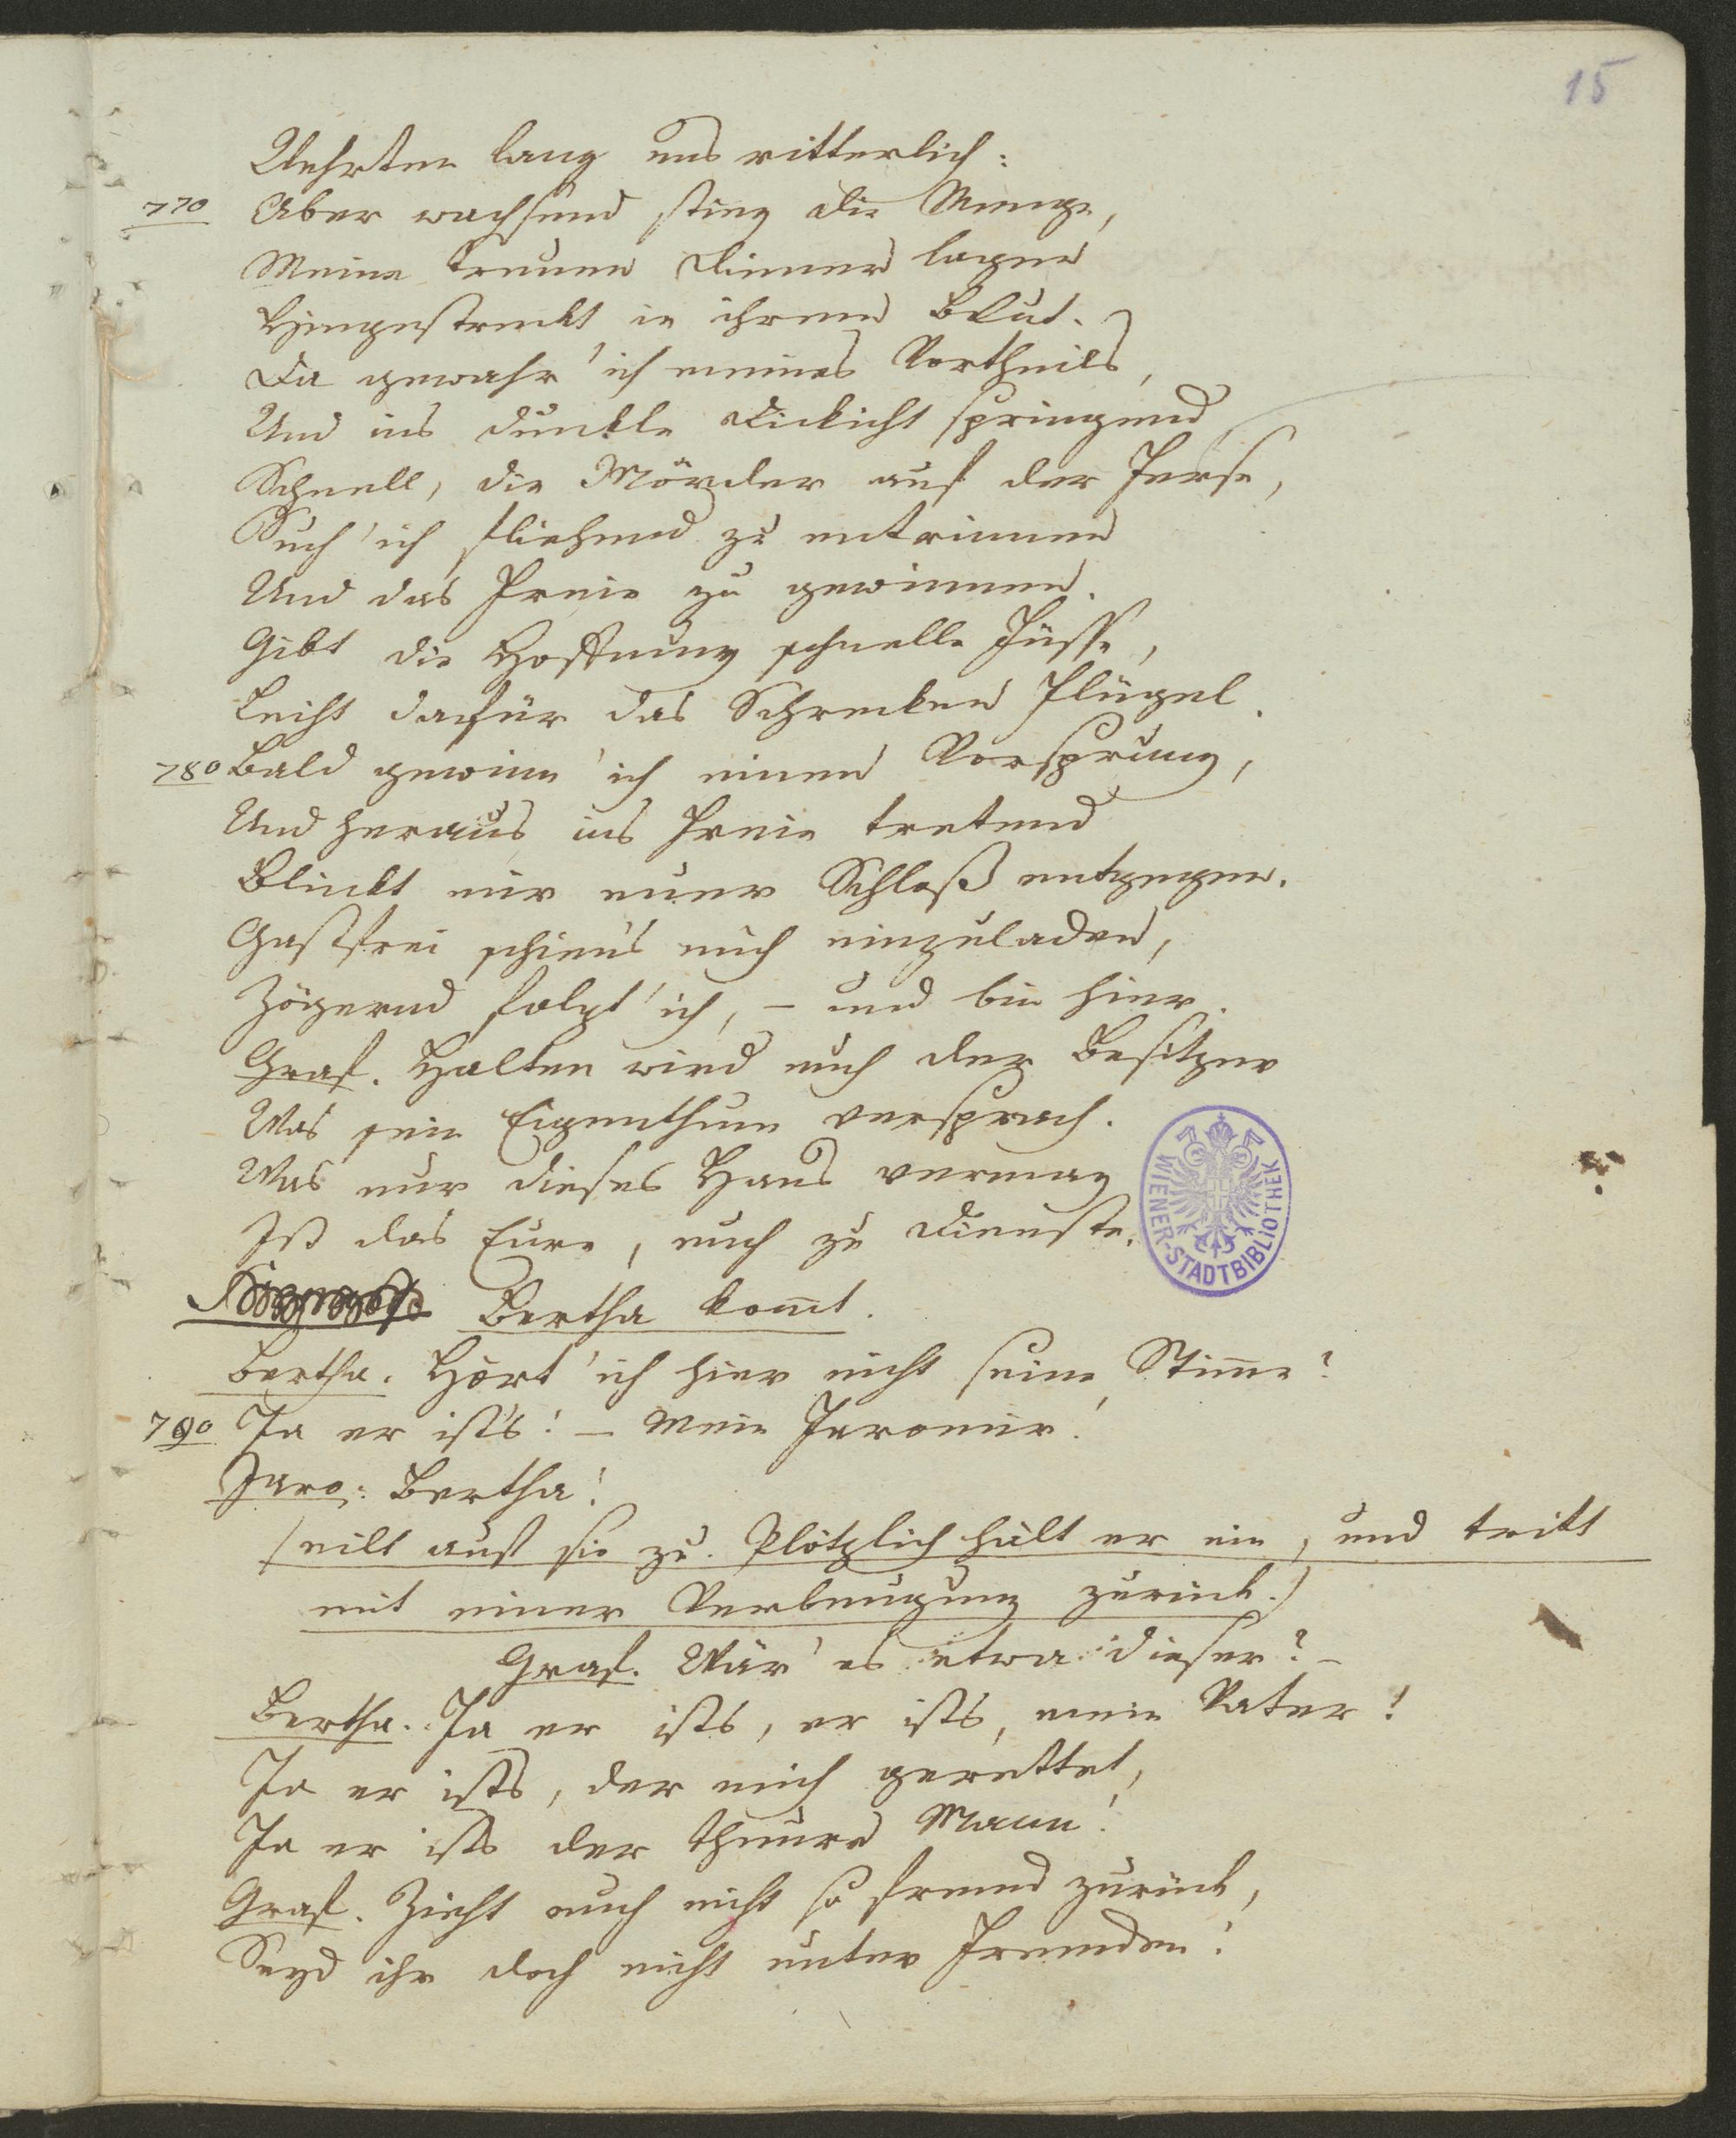 15
Wehrten lang uns ritterlich:
770 Aber wachsend stieg die Menge,
Meine treuen Diener lagen
Hingestreckt in ihrem Blut.
Da gewahr' ich meines Vortheils,
Und ins dunkle Dickicht springend
Schnell, die Mörder auf der Ferse,
Such' ich fliehend zu entrinnen
Und das Freie zu gewinnen.
Gibt die Hoffnung schnelle Füsse,
Leiht dafür das Schrecken Flügel.
780 Bald gewinn' ich einen Vorsprung,
Und heraus ins Freie tretend
Blinkt mir euer Schloß entgegen.
Gastfrei schiens mich einzuladen,
Zögernd folgt' ich, – und bin hier.
Graf. Halten wird euch der Besitzer
Was sein Eigenthum versprach.
Was nur dieses Haus vermag
Ist das Eure, euch zu Dienste.
WIENER-STADTBIBLIOTHEK
Bertha kom̄t.
Bertha. Hört' ich hier nicht seine Stim̄e?
790 Ja er ists! – Mein Jaromir!
Jaro: Bertha!
(eilt auf sie zu. Plötzlich hält er ein, und tritt
mit einer Verbeugung zurück.)
Graf. Wär' es etwa dieser? –
Bertha. Ja er ists, er ists, mein Vater!
Ja er ists, der mich gerettet,
Ja er ists der theure Mann!
Graf. Zieht euch nicht so fremd zurück,
Seyd ihr doch nicht unter Fremden!